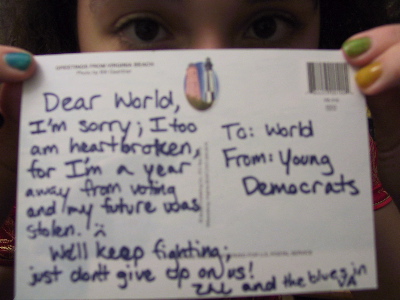 GREETINGS FROM VIRGINIA BEACH
Dear World,
I'm sorry; I too
am heartbroken,
for I'm a year
away from voting
and my future was
stolen. :(
We'll keep fighting;
just don't give up on us!
ZAL and the blues in
VA
To: World
From: Young
Democrats